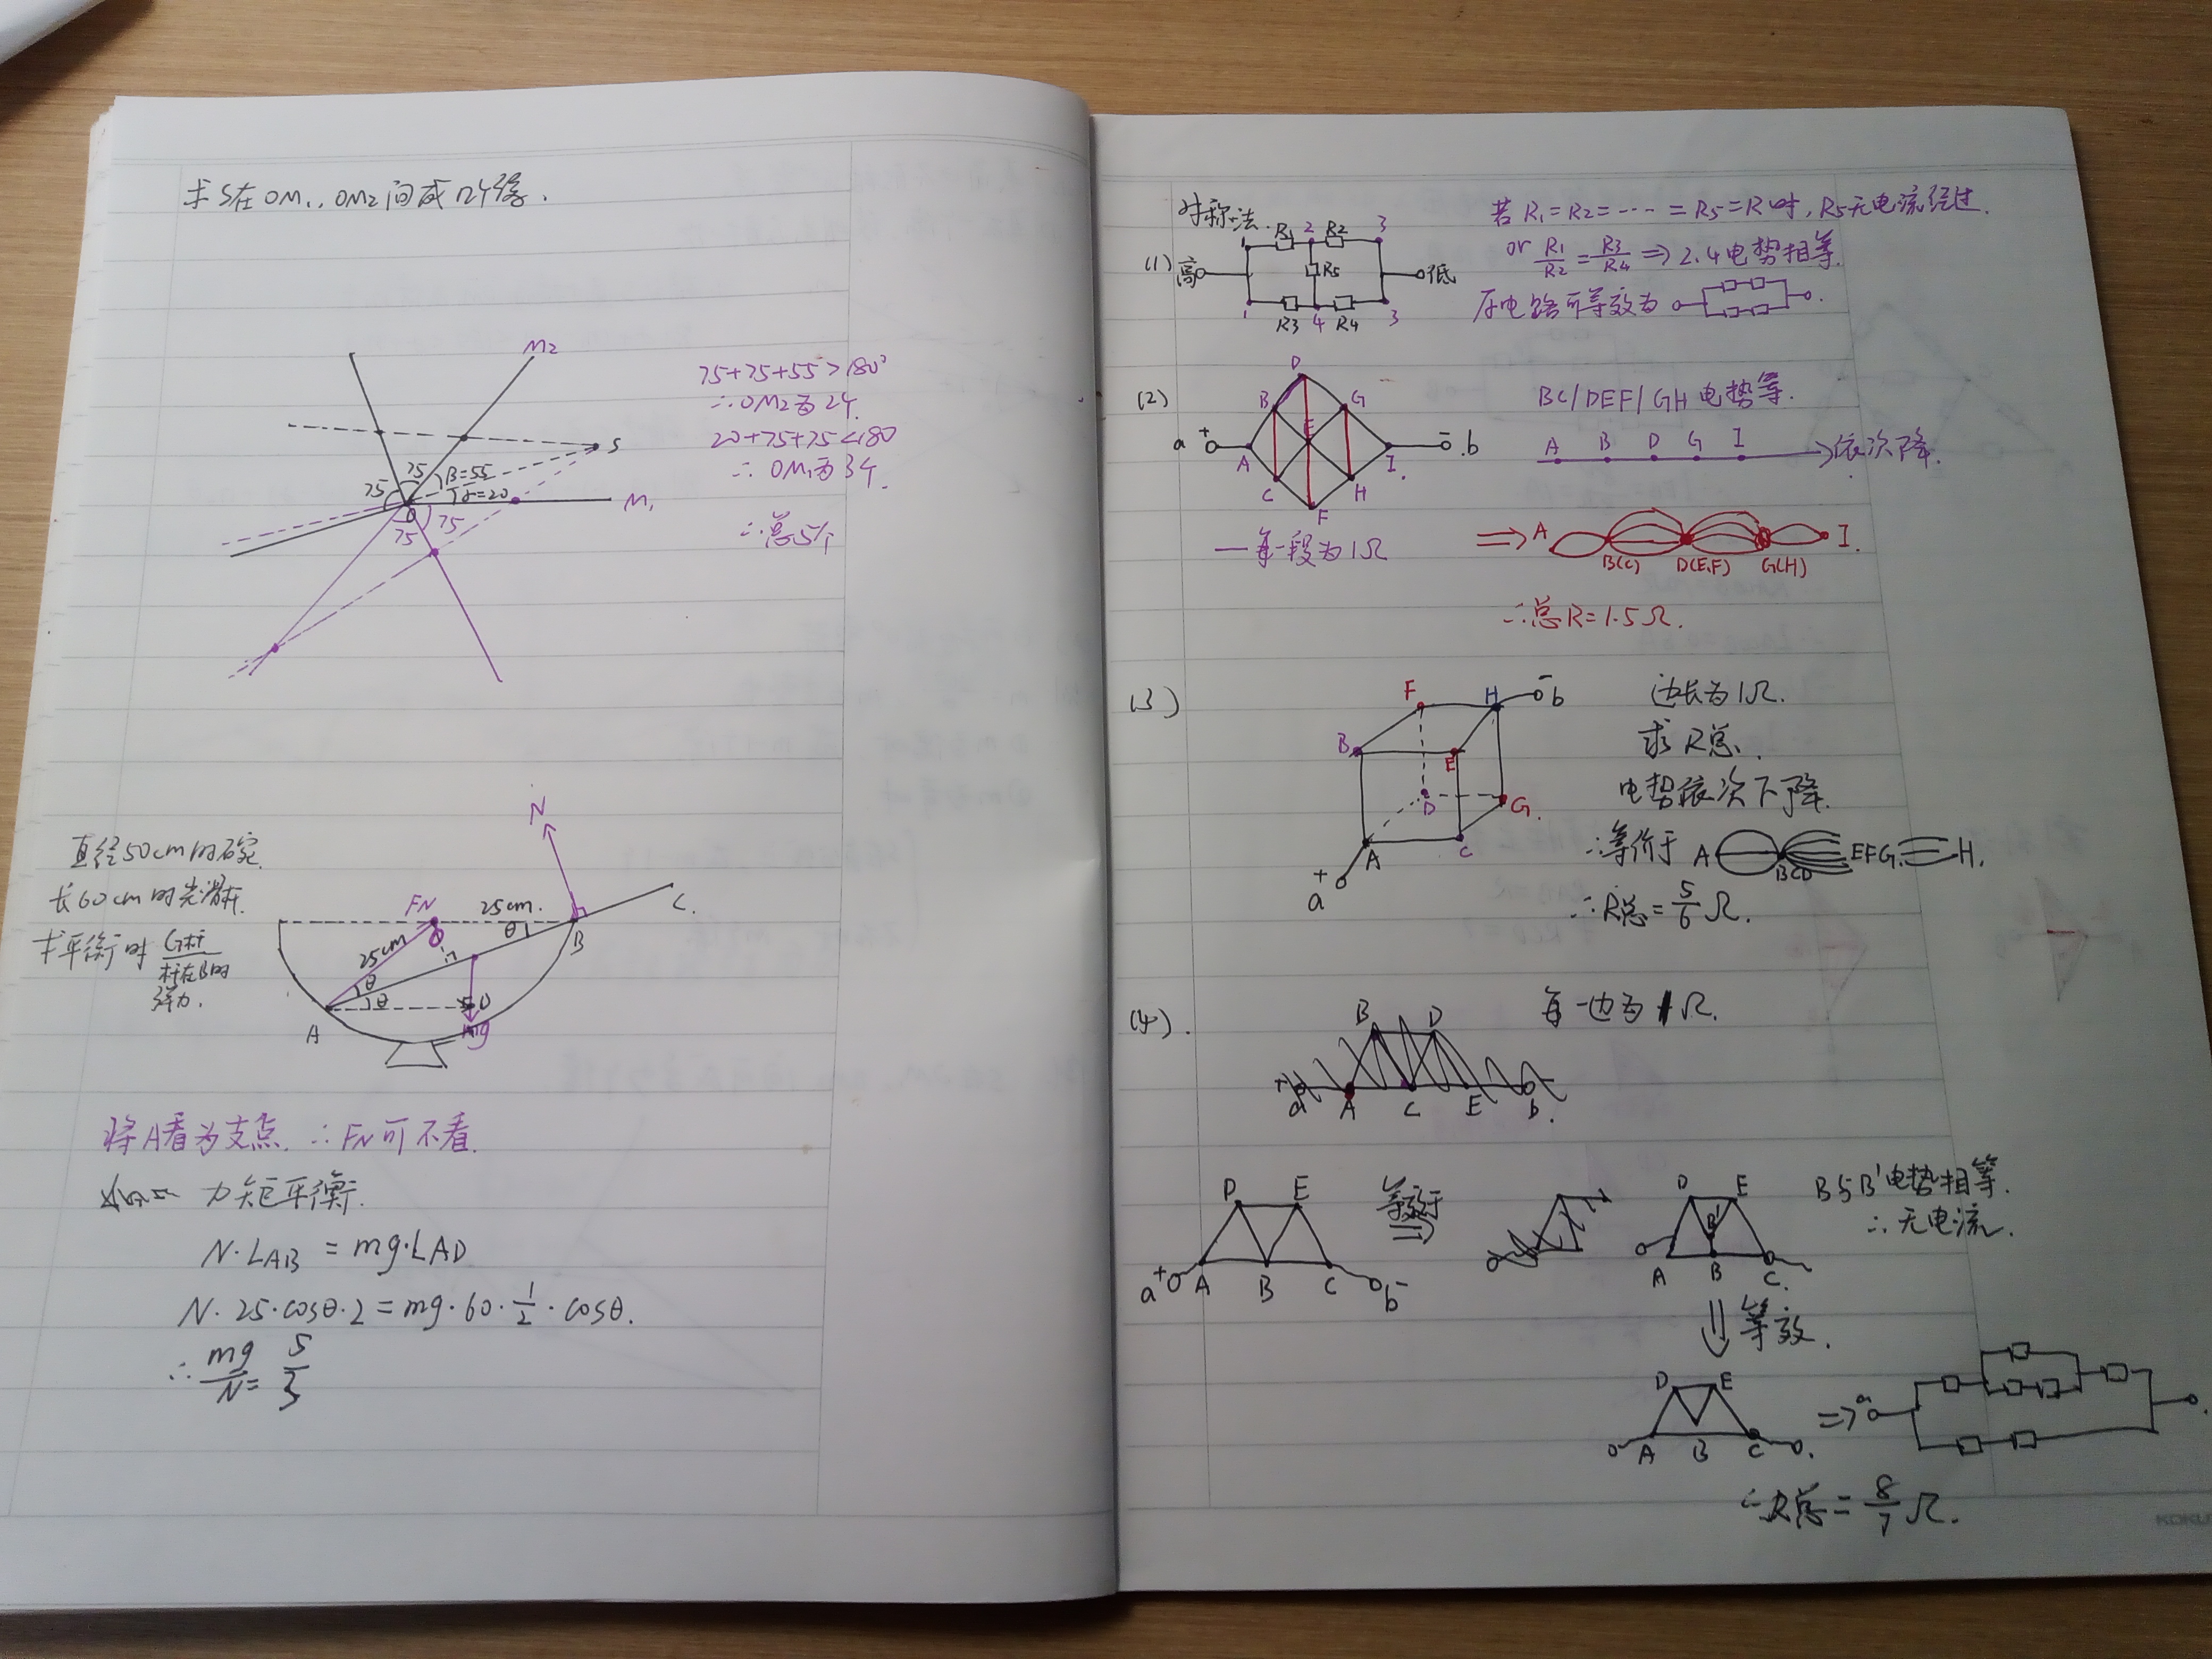 求S在OM₁,OM₂间成几个像.
M₂
75+75+55>180°
∴OM₂为2个.
20+75+75<180
∴OM₁为3个.
∴总5个
S
75
β=55
75
γ=20
M₁
O
75
75
直径50cm的碗.
长60cm的光滑杆.
求平衡时 G杆/杆在B的弹力.
N
FN
25cm.
C.
O
θ
B
25cm
θ
θ
D
A
mg
将A看为支点. ∴FN可不看.
力矩平衡.
N·LAB = mg·LAD
N·25·cosθ·2=mg·60·1/2·cosθ.
∴ mg/N = 5/3
对称法.
(1)
高
低
1 R₁ 2 R2 3
R5
1 R3 4 R4 3
若R₁=R2=……=R5=R时,R5无电流经过.
or R1/R2=R3/R4 ⇒ 2.4电势相等.
原电路可等效为
(2)
D
B
G
E
a
+
A
I.
-
b
C
H
F
一每一段为1Ω
BC/DEF/GH电势等.
A B D G I 依次降.
⇒ A B(C) D(E,F) G(H) I.
∴总R=1.5Ω.
(3)
F
H
-
b
B
E
D
G.
A
C
+
a
边长为1Ω.
求R总.
电势依次下降.
∴等价于 A BCD EFG H.
∴R总=5/6Ω.
(4).
每一边为1Ω.
B
D
+
a
A
C
E
b.
D
E
a
+
A
B
C
b
-
等效于
⇒
D
E
B'
A
B
C.
B与B'电势相等.
∴无电流.
⇓等效.
D
E
A
B
C
⇒
a
∴R总=8/7Ω.